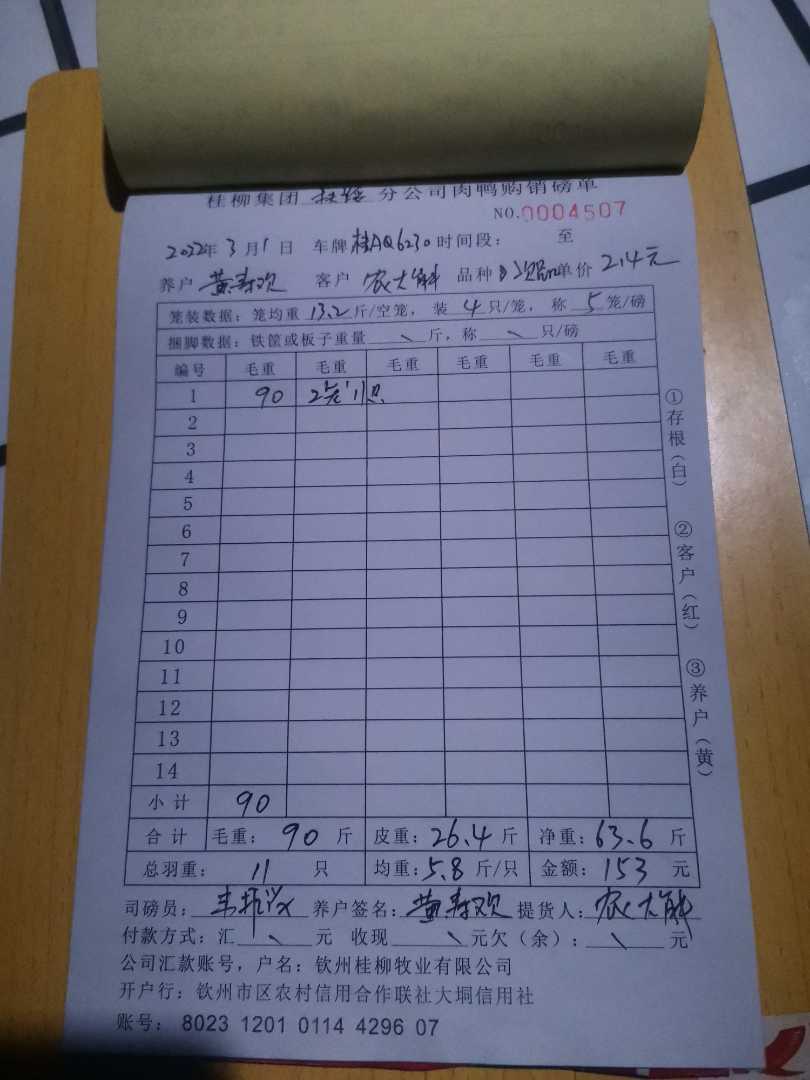 桂柳集团 扶绥 分公司肉鸭购销磅单
NO.0004507
2022年 3 月 1 日 车牌 桂AQ6230 时间段: 至
养户 黄寿欢 客户 农大 品种 次品 单价 2.4元
笼装数据:笼均重 13.2 斤/空笼, 装 4 只/笼, 称 5 笼/磅
捆脚数据:铁筐或板子重量 \ 斤,称 \ 只/磅
编号 毛重 毛重 毛重 毛重 毛重 毛重
1 90 2笼11只
2
3
4
5
6
7
8
9
10
11
12
13
14
小计 90
合计 毛重: 90 斤 皮重: 26.4 斤 净重: 63.6 斤
总羽重: 11 只 均重: 5.8 斤/只 金额: 153 元
司磅员: 韦振兴 养户签名: 黄寿欢 提货人: 农大
付款方式:汇 \ 元 收现 \ 元欠(余): \ 元
公司汇款账号,户名:钦州桂柳牧业有限公司
开户行:钦州市区农村信用合作联社大垌信用社
账号: 8023 1201 0114 4296 07
①存根(白)
②客户(红)
③养户(黄)